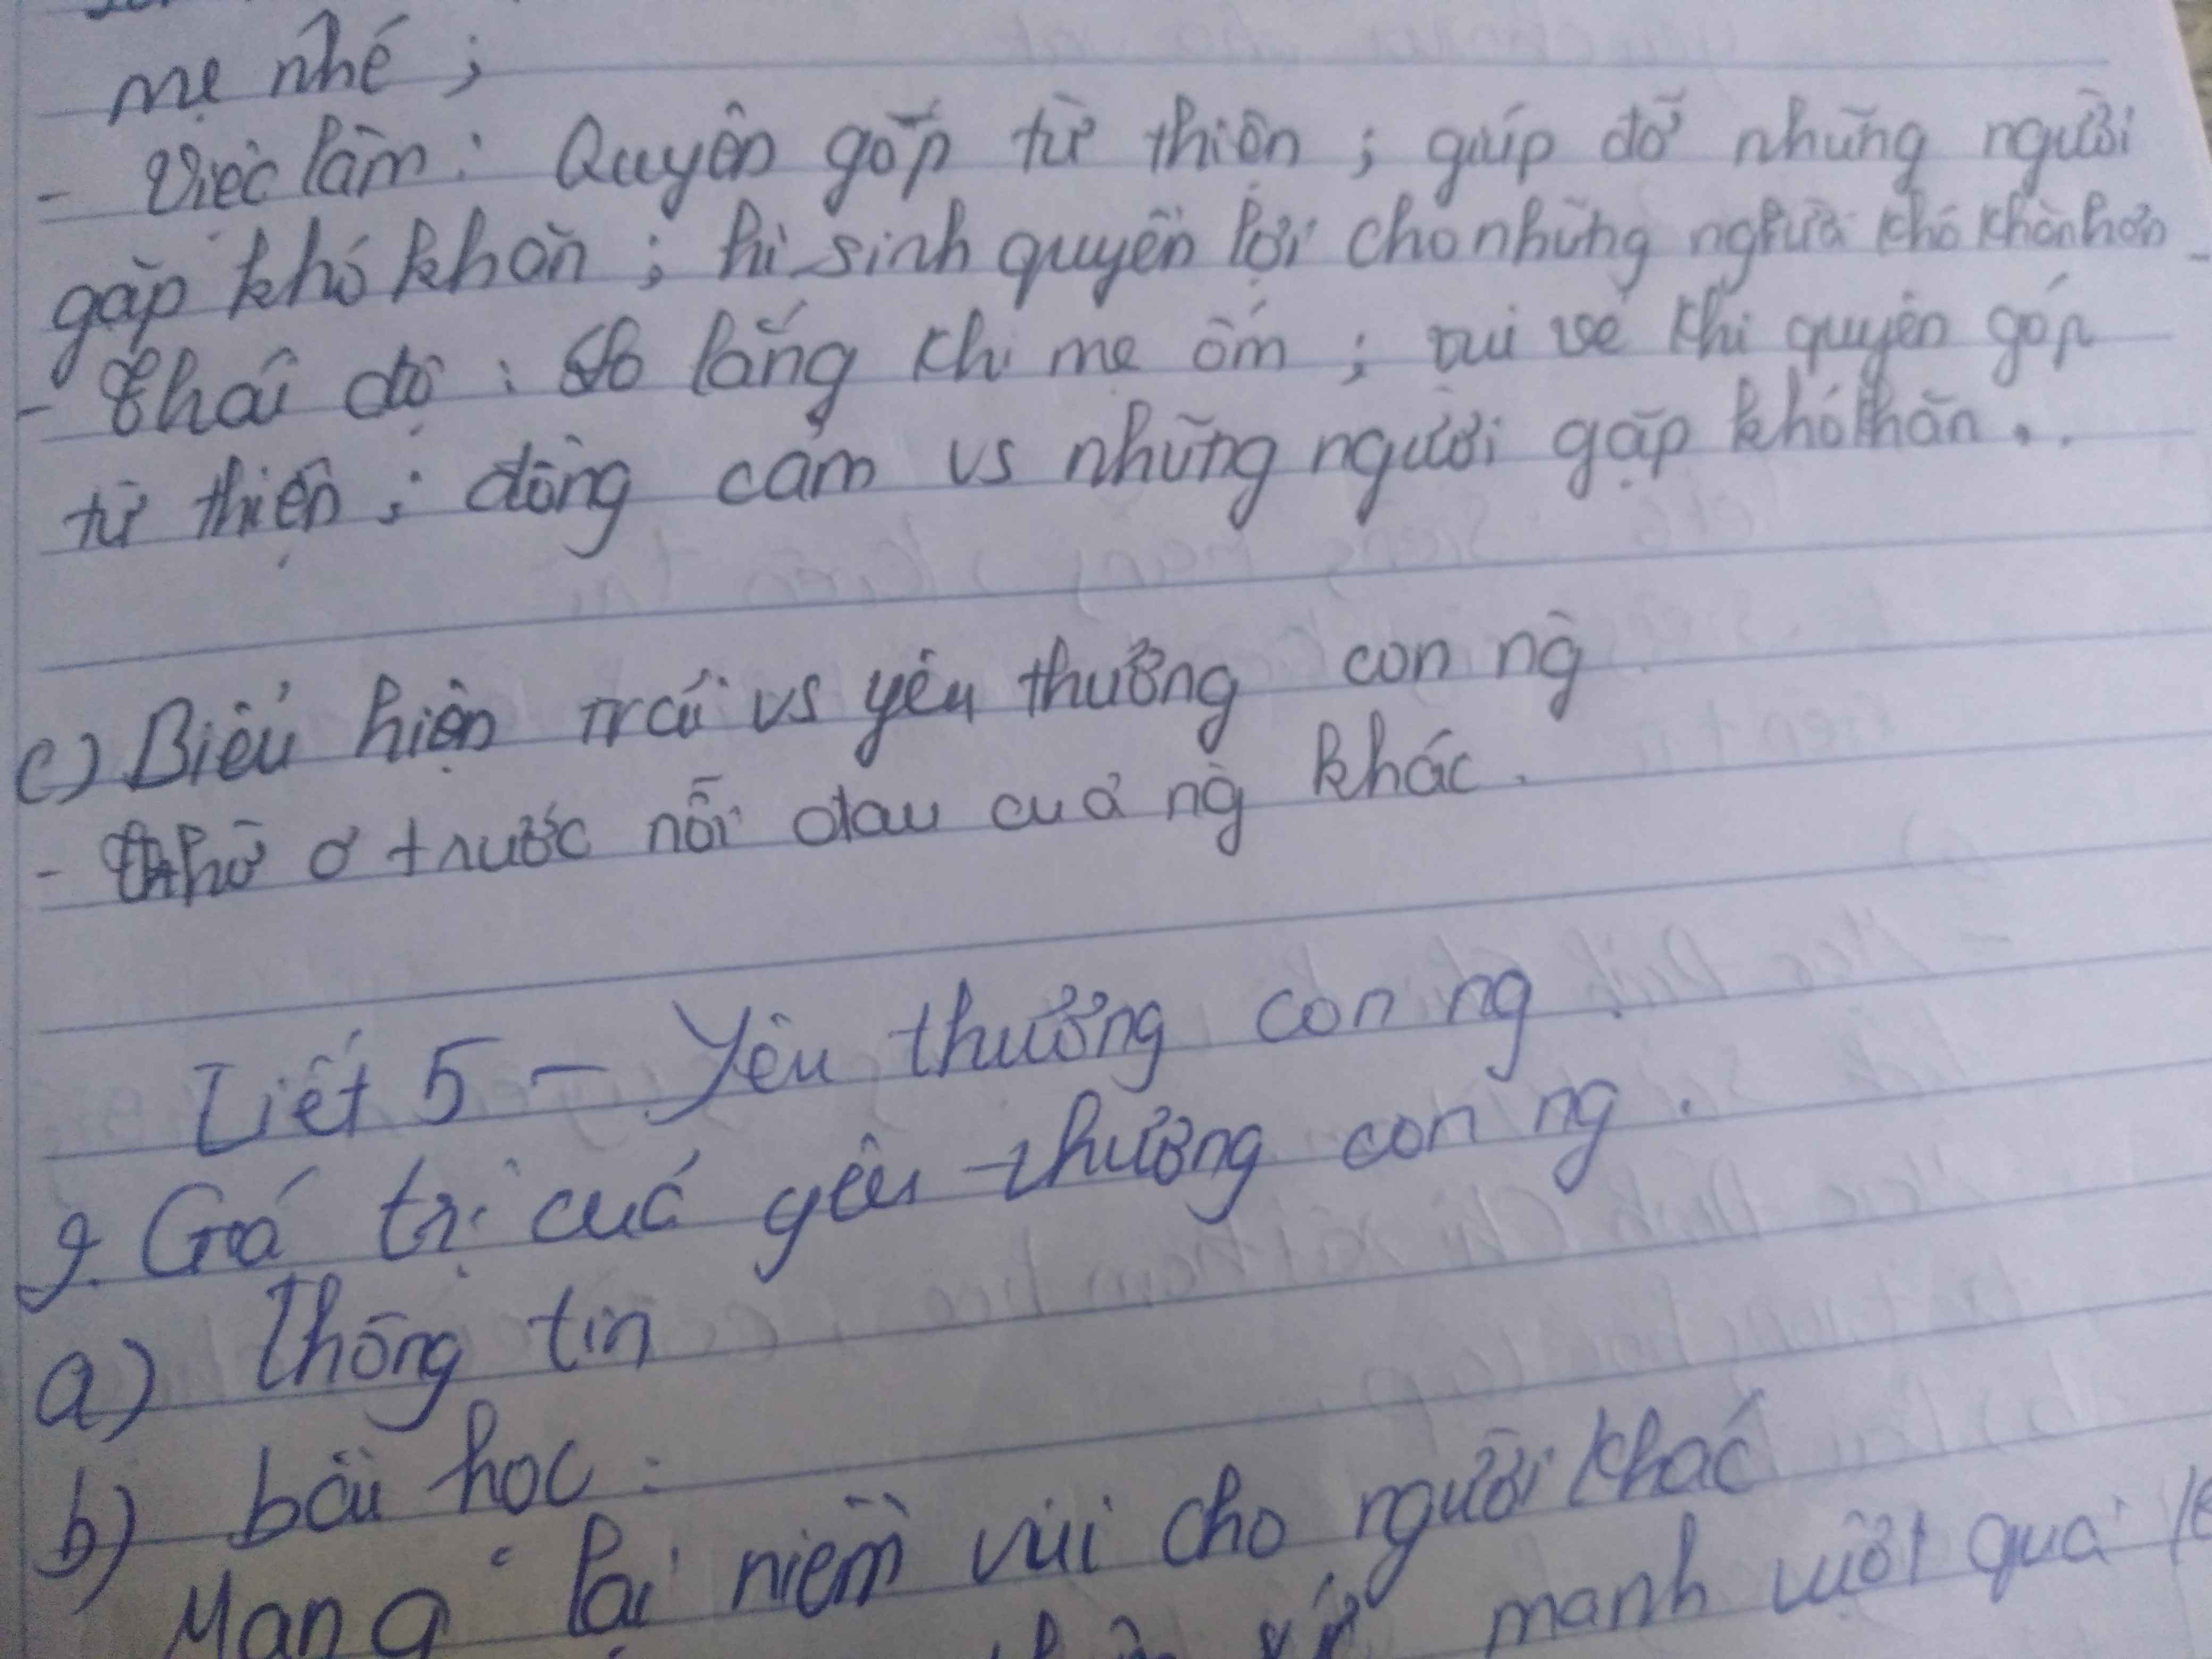 mẹ nhé ;
- Việc làm : Quyên góp từ thiện ; giúp đỡ những người
gặp khó khăn ; hi sinh quyền lợi cho những người khó khăn hơn
- Thái độ : lo lắng khi mẹ ốm ; vui vẻ khi quyên góp
từ thiện ; đồng cảm vs những người gặp khó khăn .
c) Biểu hiện trái vs yêu thương con ng
- thờ ơ trước nỗi đau cuả ng khác .
Tiết 5 - Yêu thương con ng
2. Giá trị cuả yêu thương con ng .
a) Thông tin
b) bài học :
Mang lại niềm vui cho người khác
mạnh vượt qua